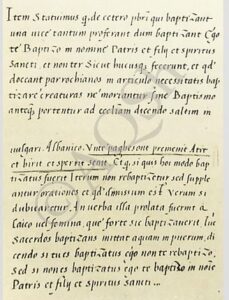 Item Statuimus q. de cetero pbri qui baptizant
una vice tantum proferant dum baptizant Ego
te Baptizo in nomine Patris et filÿ et spiritus
sancti. et non ter sicut hucusq; fecerunt, et qd
doceant parrochianos in articulo necessitatis bap
tizare creaturas ne moriantur sine Baptismo
anteq. portentur ad eccliam decendo saltem in
vulgari. Albanico. Vnte paghesont premenit Atit
et birit et spertit senit. Et q. si quis hoi modo bap
tizatus fuerit Iterum non rebaptizetur sed supple
antur orationes et qd omissum est Verum si
dubitetur. An verba illa prolata fuerint a
Laico vel femina, que forte sic baptizauerit, tuc
Sacerdos baptizans mittat aquam in puerum, di
cendo si tu es baptizatus ego non te rebaptizo.
sed si non es baptizatus ego te baptizo in noie
Patris et filÿ et spiritus sancti...